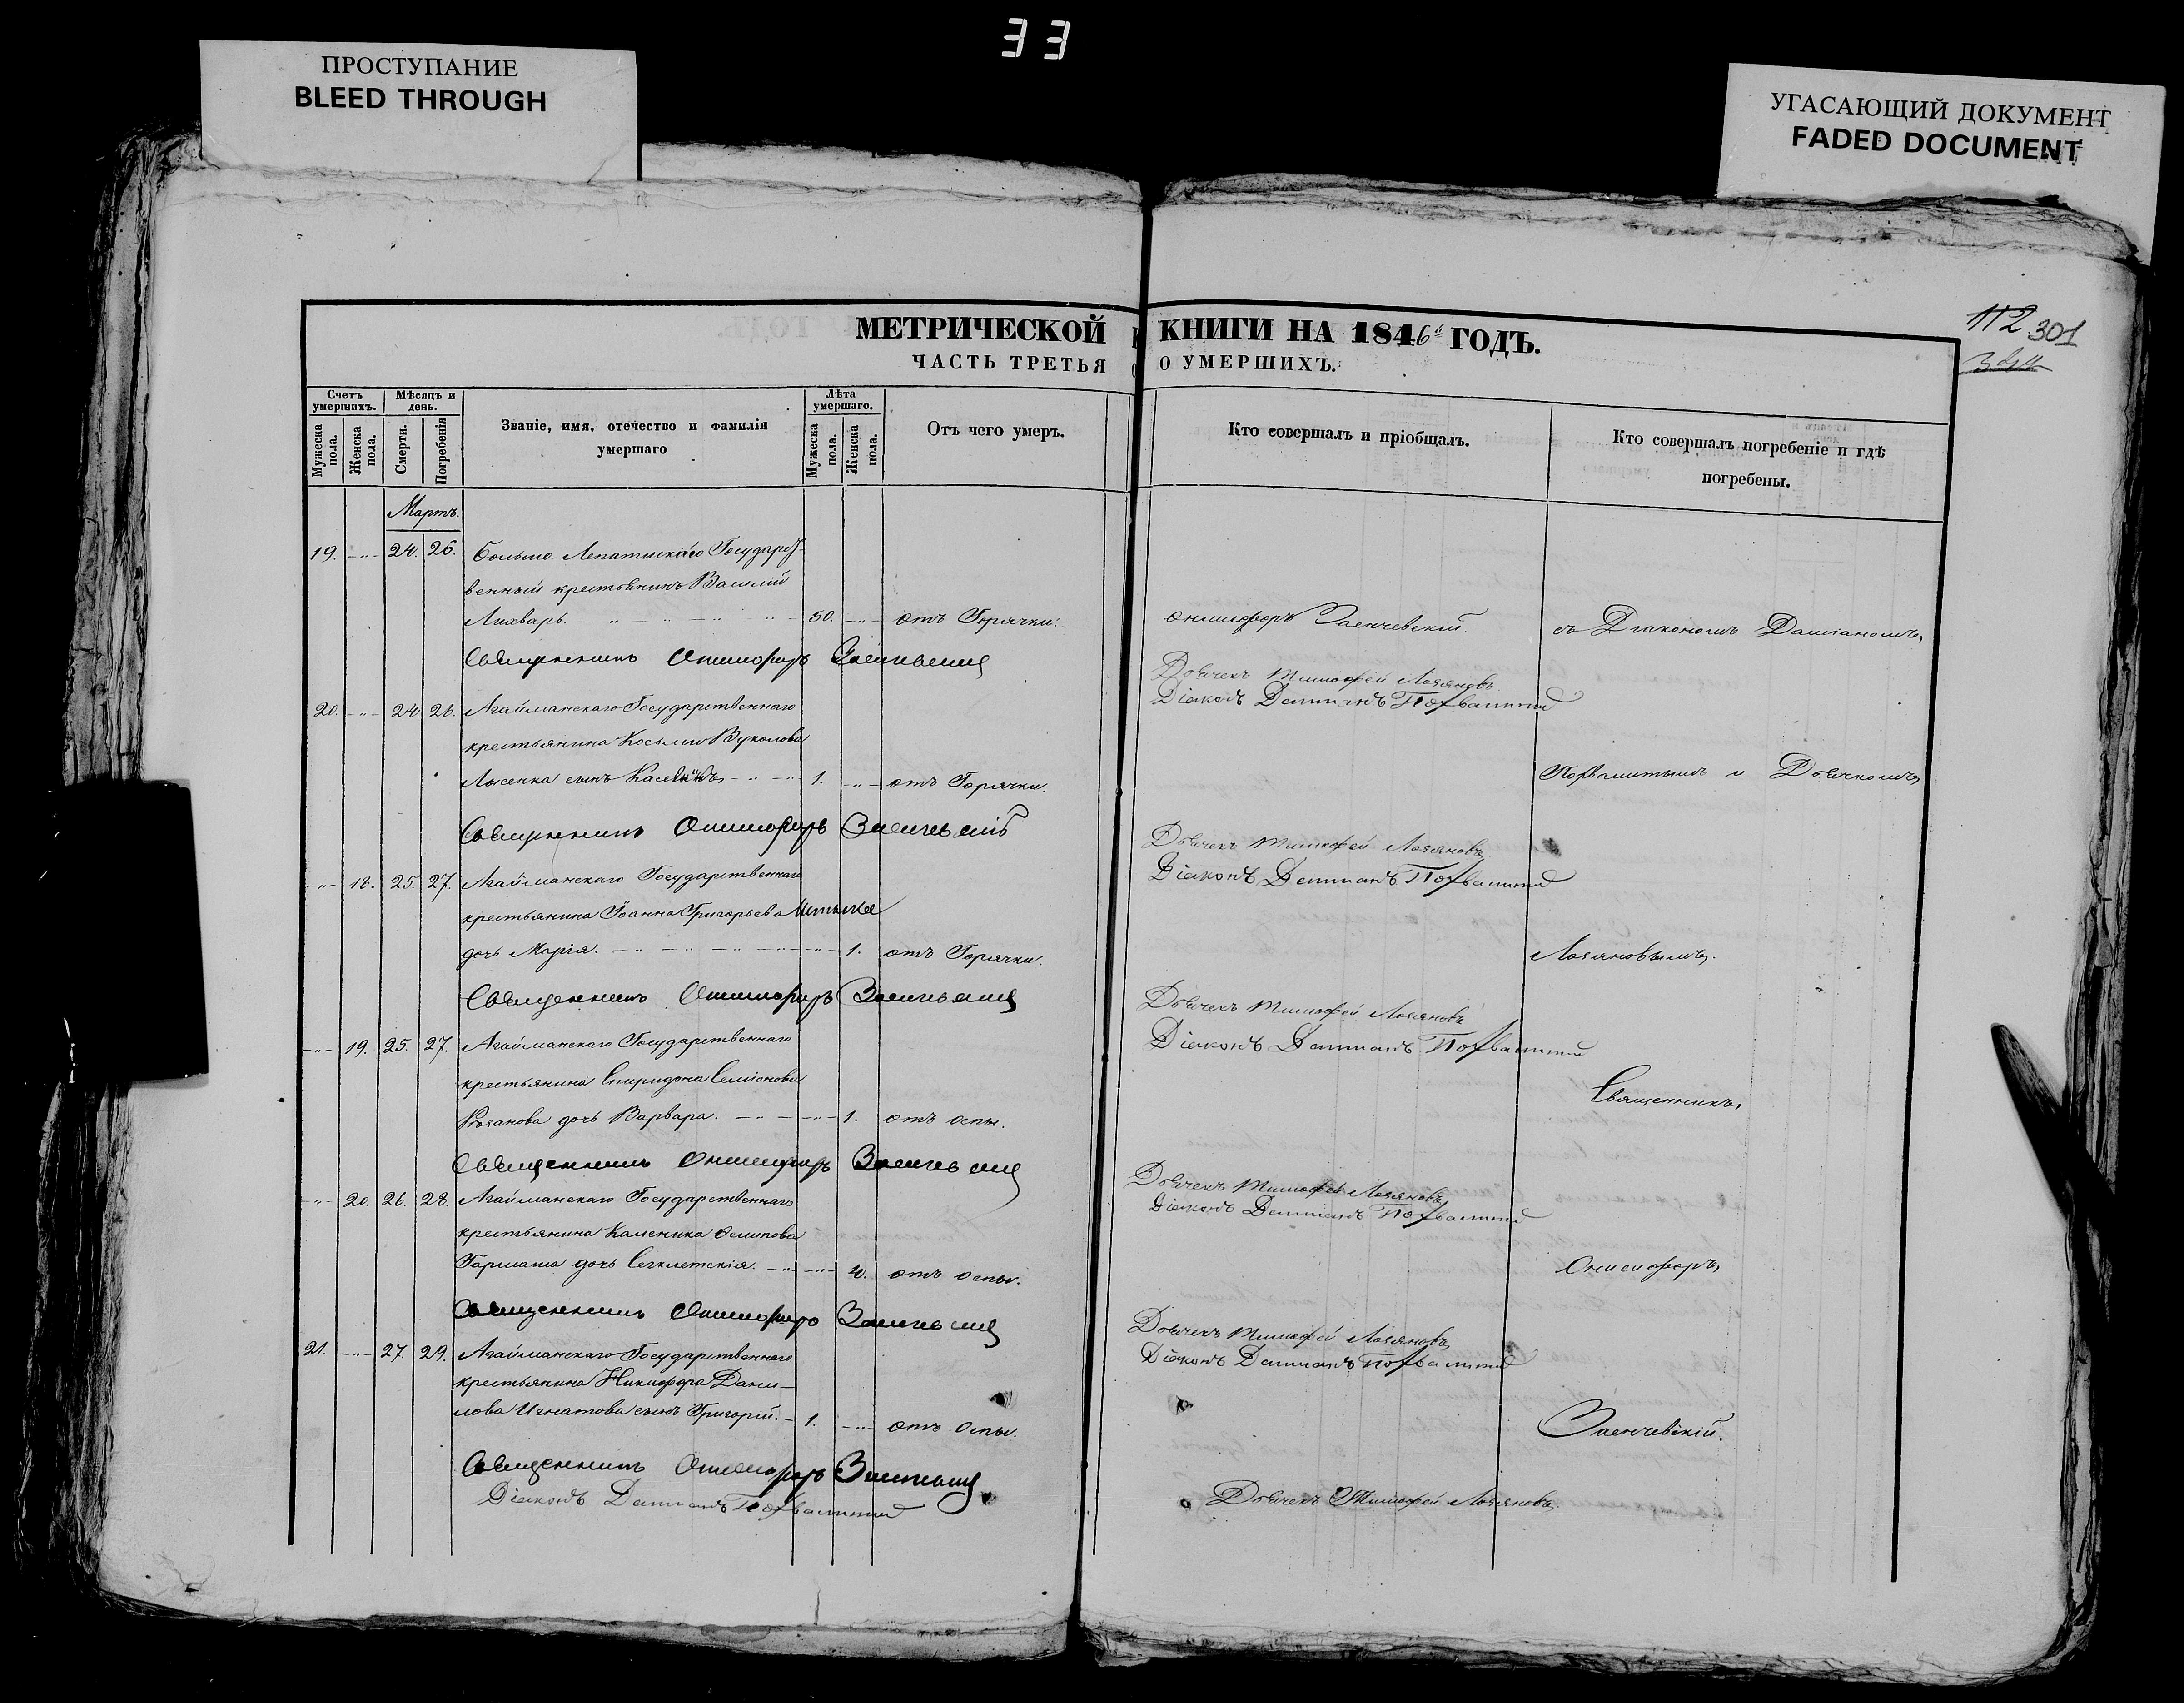 33
ПРОСТУПАНИЕ
BLEED THROUGH
УГАСАЮЩИЙ ДОКУМЕНТ
FADED DOCUMENT
112 301
МЕТРИЧЕСКОЙ КНИГИ НА 1846й ГОДЪ.
ЧАСТЬ ТРЕТЬЯ О УМЕРШИХЪ.
Счетъ умершихъ.
Мужеска пола.
Женска пола.
Мѣсяцъ и день.
Смерти.
Погребенія
Званіе, имя, отечество и фамилія умершаго
Лѣта умершаго.
Мужеска пола.
Женска пола.
Отъ чего умеръ.
Кто совершалъ и пріобщалъ.
Кто совершалъ погребеніе и гдѣ погребены.
Мартъ.
19. 24. 26. Больше-Лепатихскій Государст-
венный крестьянинъ Василій
Лихварь. 50. отъ Горячки.
Онисифоръ Заенчевскій.
съ Діакономъ Даміаномъ
Священникъ Онисифоръ Заенчевскій
Дьячекъ Тимофей Лазановъ
Діаконъ Даміанъ Похвалитій
20. 24. 26. Агайманскаго Государственнаго
крестьянина Косьмы Вуколова
Лысенка сынъ 1. отъ Горячки.
Похвалитымъ и Дьячкомъ
Священникъ Онисифоръ Заенчевскій
Дьячекъ Тимофей Лазановъ
Діаконъ Даміанъ Похвалитій
18. 25. 27. Агайманскаго Государственнаго
крестьянина Іоанна Григорьева
дочь Марія. 1. отъ Горячки.
Лазановымъ.
Священникъ Онисифоръ Заенчевскій
Дьячекъ Тимофей Лазановъ
Діаконъ Даміанъ Похвалитій
19. 25. 27. Агайманскаго Государственнаго
крестьянина Спиридона Семіонова
дочь Варвара. 1. отъ оспы.
Священникъ
Священникъ Онисифоръ Заенчевскій
Дьячекъ Тимофей Лазановъ
Діаконъ Даміанъ Похвалитій
20. 26. 28. Агайманскаго Государственнаго
крестьянина Каленика Осипова
Гармаша дочь 40. отъ оспы.
Онисифоръ
Священникъ Онисифоръ Заенчевскій
Дьячекъ Тимофей Лазановъ
Діаконъ Даміанъ Похвалитій
21. 27. 29. Агайманскаго Государственнаго
крестьянина Никифора Дани-
лова Игнатова сынъ Григорій. 1. отъ Оспы.
Заенчевскій.
Священникъ Онисифоръ Заенчевскій
Діаконъ Даміанъ Похвалитій
Дьячекъ Тимофей Лазановъ